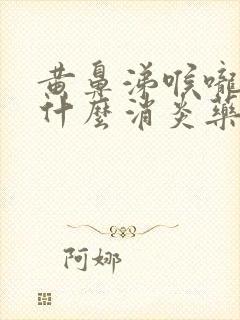 黄鼻涕喉嚨
什麼消炎藥
阿娜